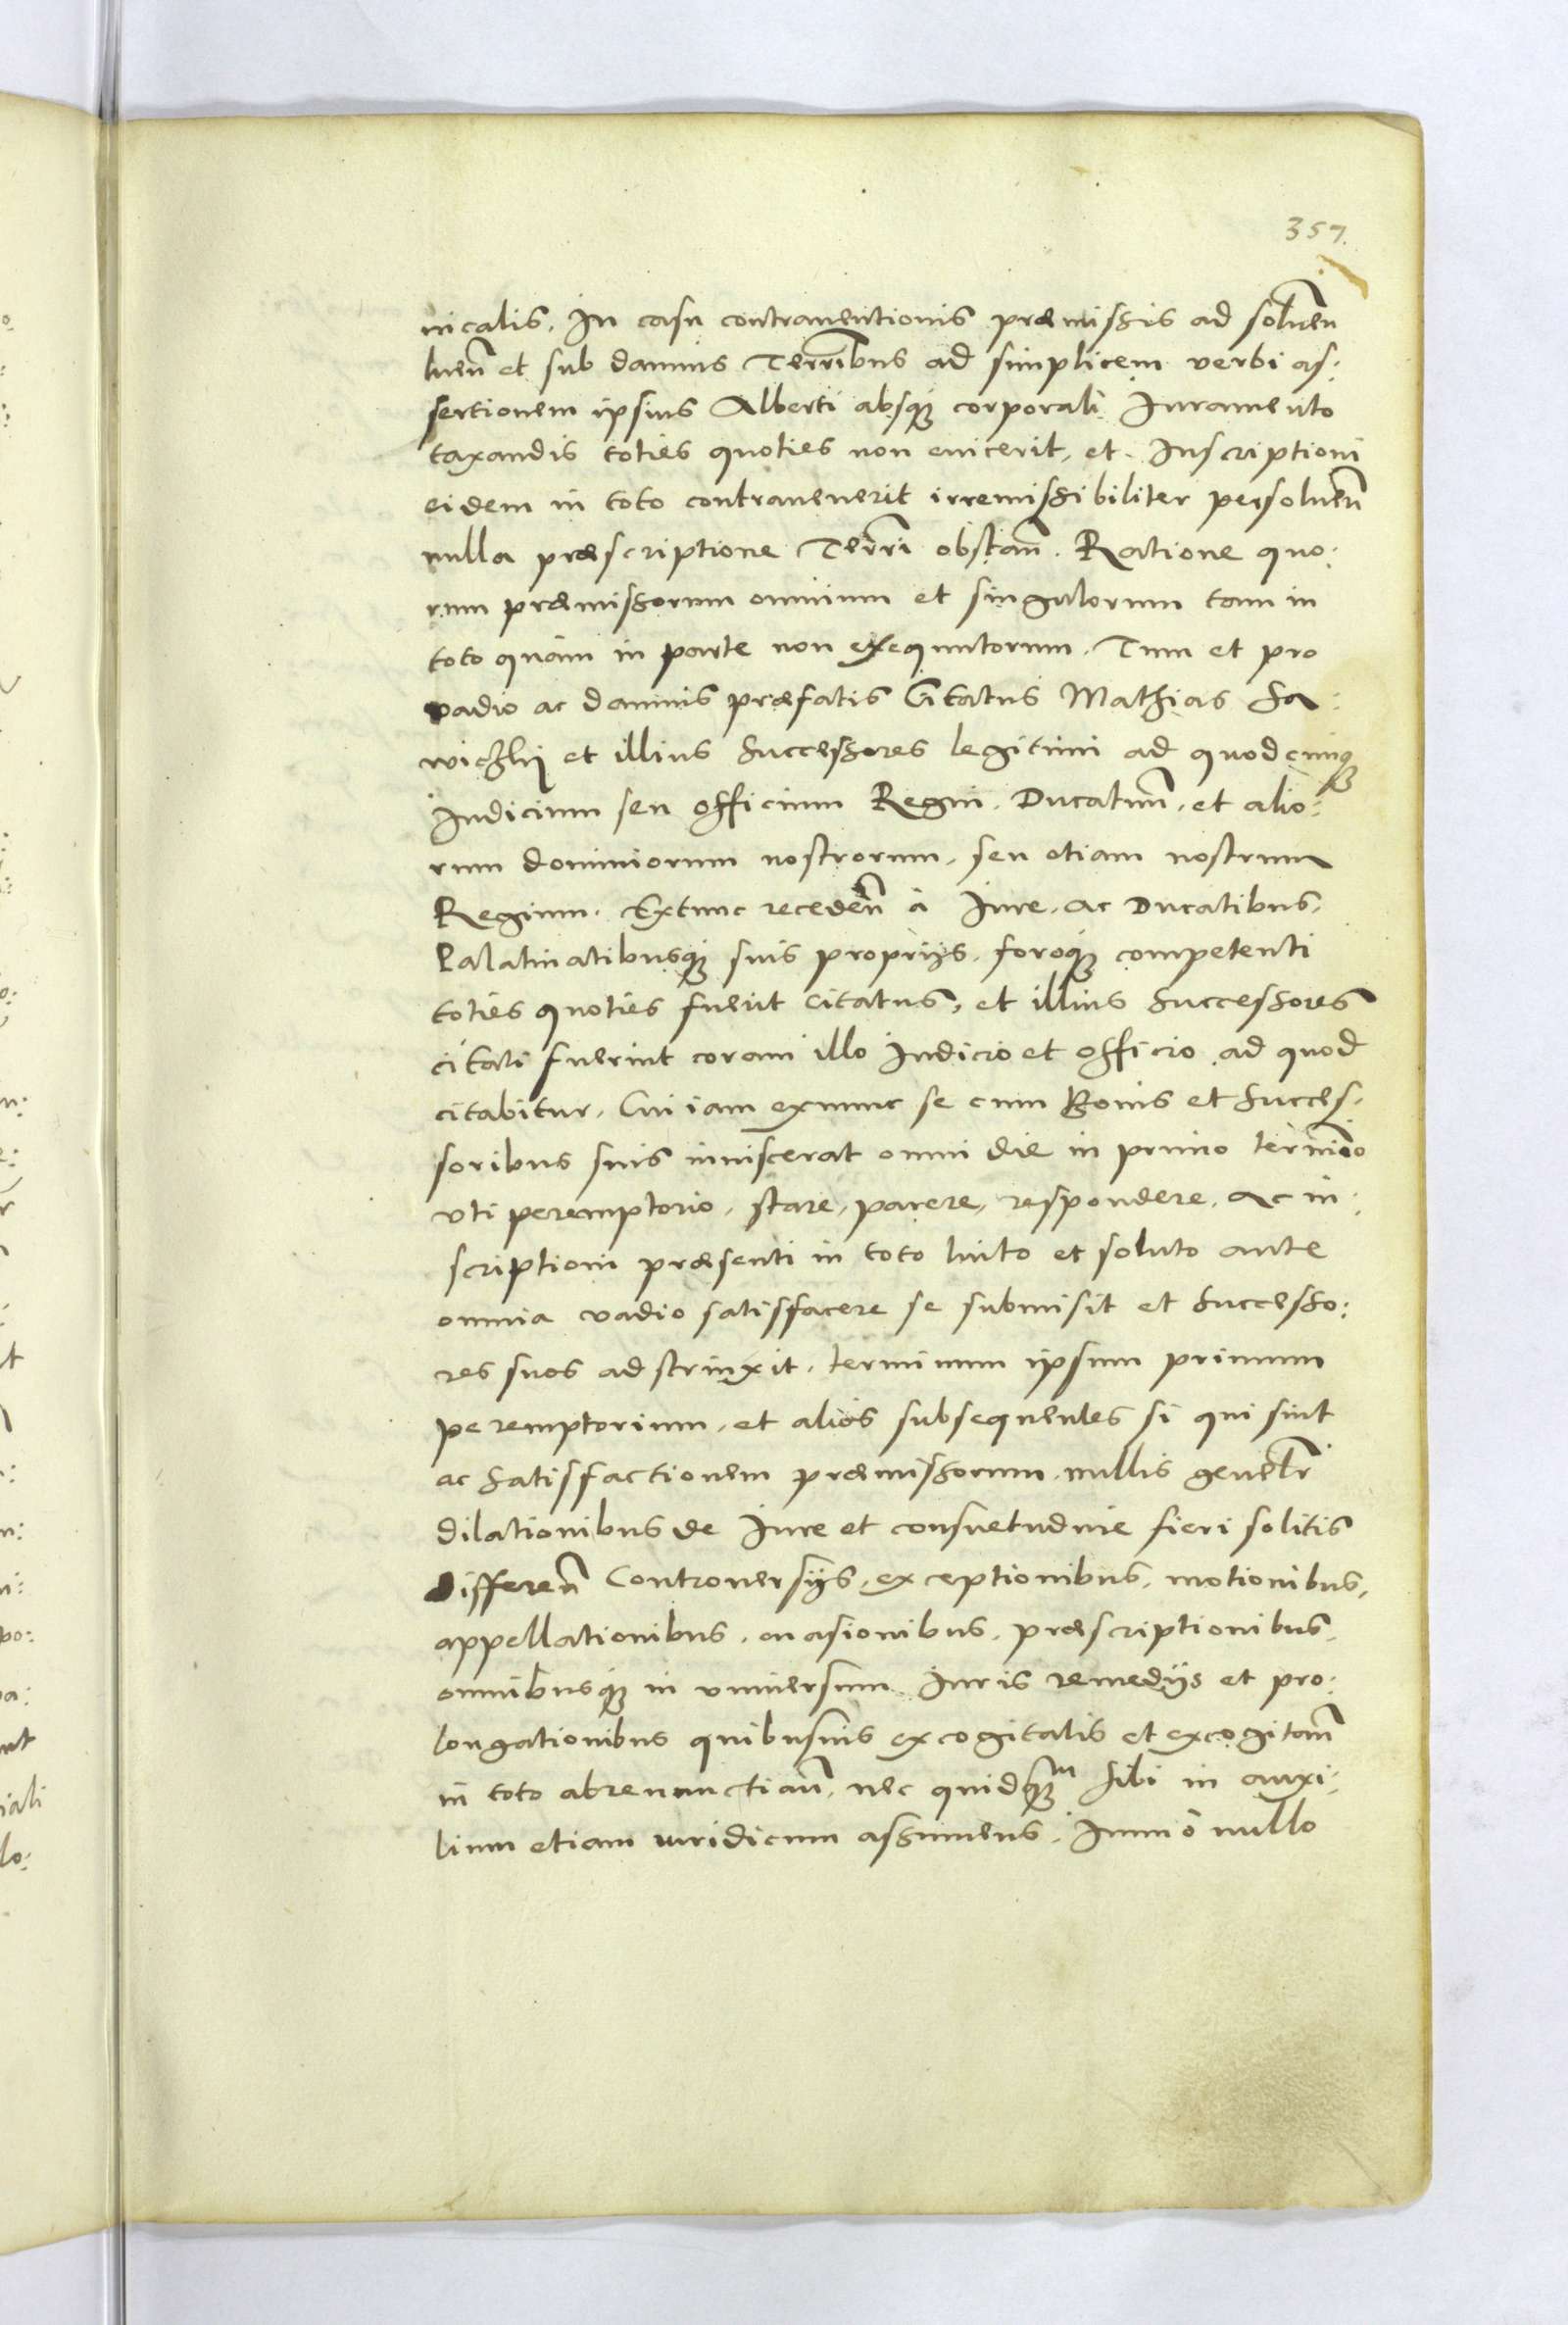 357.
nicalis. In casu contrauentionis præmissis ad soluen
luen̄ et sub damnis Terr̄ibus ad simplicem verbi as:
sertionem ipsius Alberti absq3 corporali Iuramento
taxandis toties quoties non euicerit, et Inscriptioni
eidem in toto contrauenerit irremissibiliter persoluen̄
nulla præscriptione Terr̄i obstan̄. Ratione quo:
rum præmissorum omnium et singulorum tam in
toto quàm in parte non exequutorum. Tum et pro
vadio ac damnis præfatis Citatus Mathias Sa:
wichij et illius Successores legitimi ad quodcunq3
Iudicium seu officium Regni. Ducatum̄, et alio:
rum dominiorum nostrorum, seu etiam nostrum
Regium. Extunc receden̄ à Iure, ac Ducatibus,
Palatinatibusq3 suis proprijs, foroq3 competenti
toties quoties fuerit citatus, et illius Successores
citati fuerint coram illo Iudicio et officio ad quod
citabitur. Cui iam exnunc se cum Bonis et Succes:
soribus suis inuiscerat omni die in primo termino
vti peremptorio, stare, parere, respondere, ac in:
scriptioni præsenti in toto luito et soluto ante
omnia vadio satisfacere se submisit et Successo:
res suos adstrinxit, terminum ipsum primum
peremptorium, et alios subsequentes si qui sint
ac Satisfactionem præmissorum nullis genel̄r
dilationibus de Iure et consuetudine fieri solitis
differen̄ Controuersijs, exceptionibus, motionibus,
appellationibus, euasionibus, præscriptionibus,
omnibusq3 in vniuersum Iuris remedijs et pro:
longationibus quibusuis excogitatis et excogitan̄
in toto abrenunctian̄, nec quidq3m sibi in auxi:
lium etiam iuridicum assumens, Immò nullo